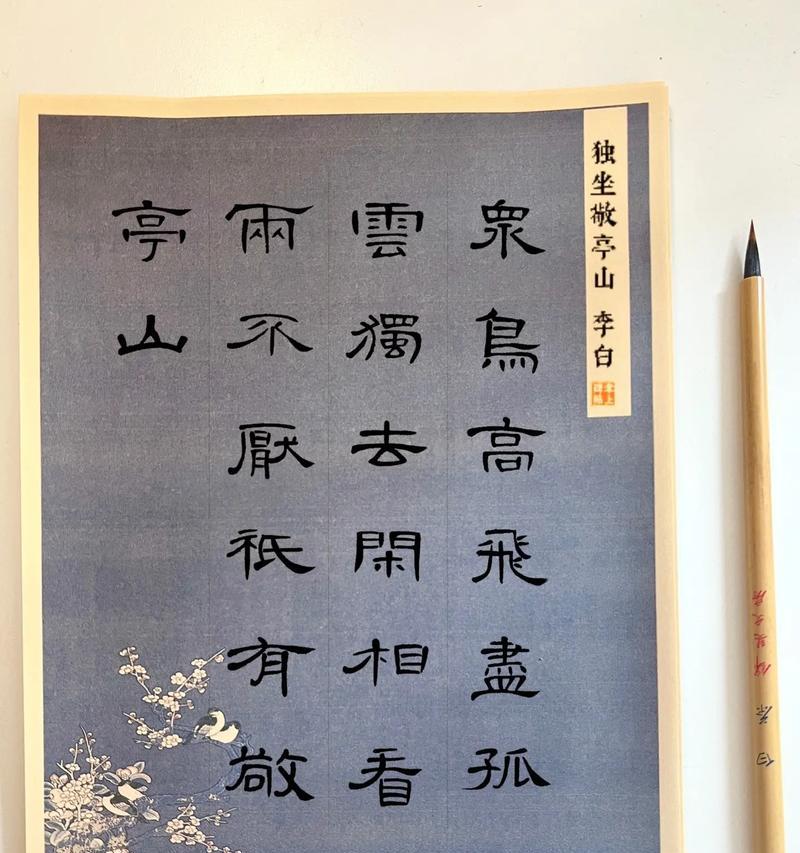 独坐敬亭山 李白
衆鳥高飛盡孤
雲獨去閑相看
兩不厭祇有敬
亭山